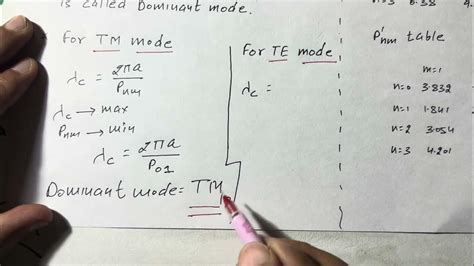 is called Dominant mode.
For TM mode
λc = 2πa / Pnm
λc → max
Pnm → min
λc = 2πa / P01
Dominant mode = TM
For TE mode
λc =
n=3 8.38
P'nm table
m=1
n=0 3.832
n=1 1.841
n=2 3.054
n=3 4.201